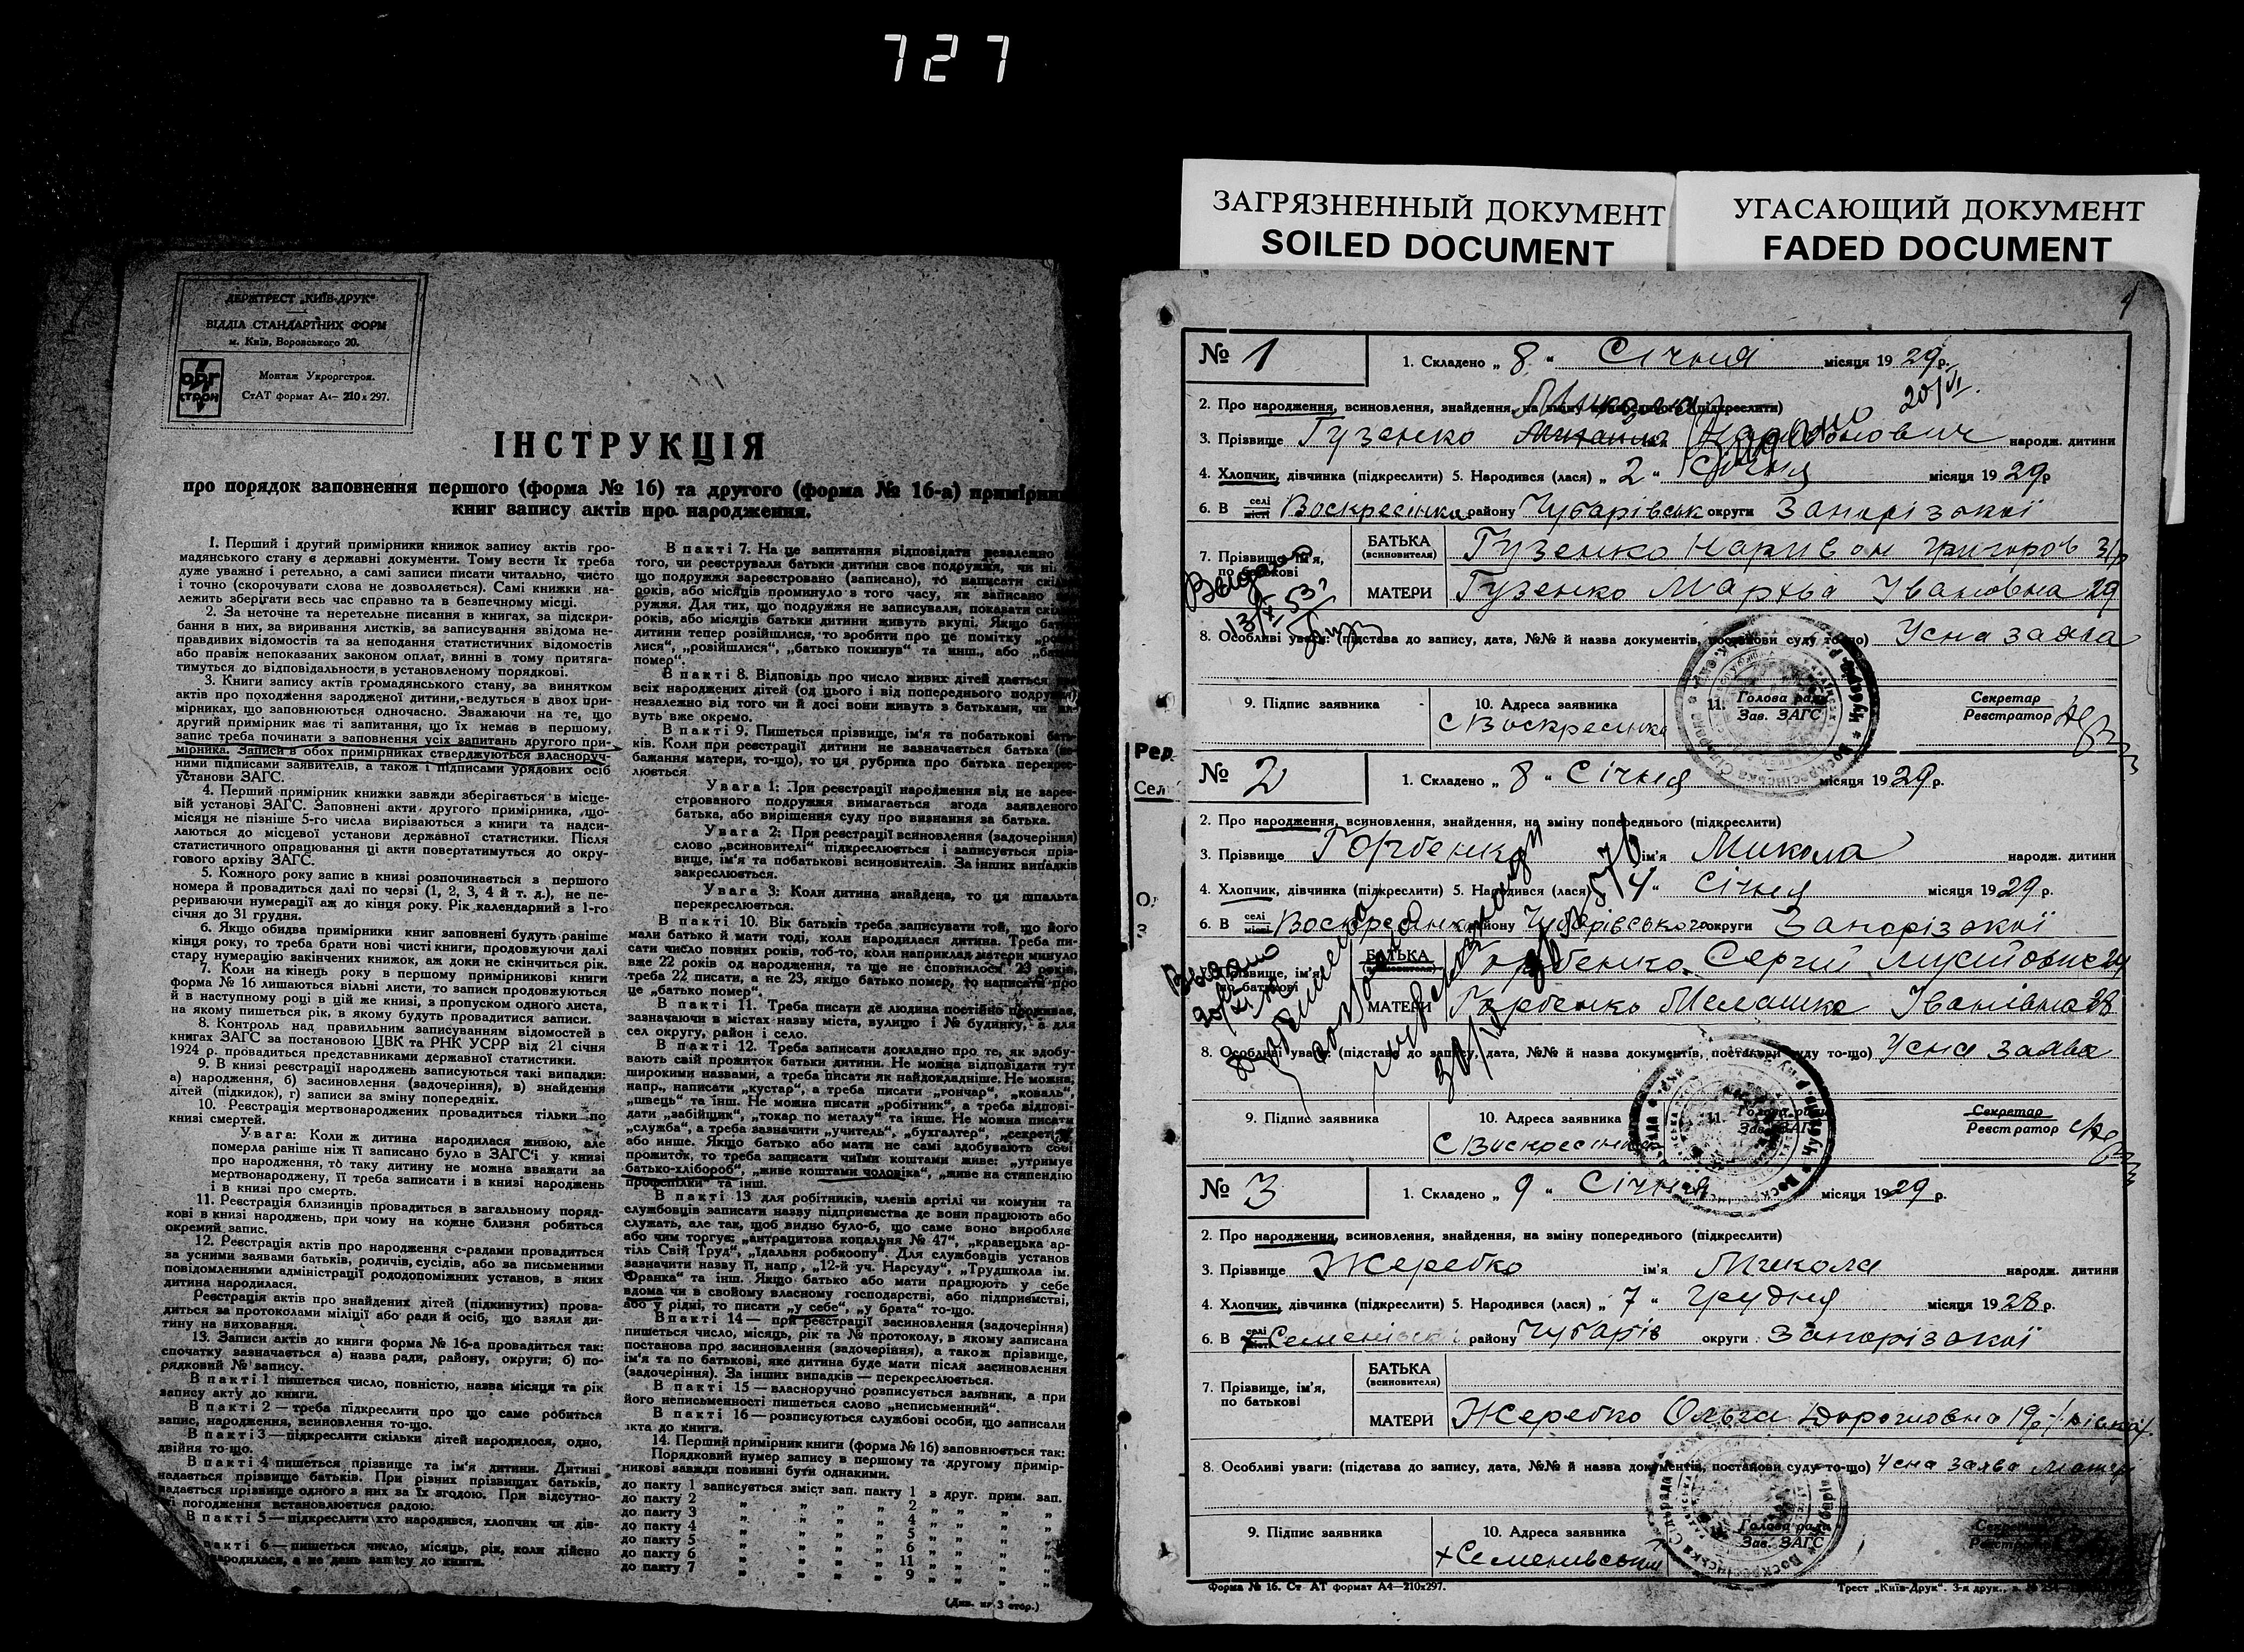 727
ЗАГРЯЗНЕННЫЙ ДОКУМЕНТ
SOILED DOCUMENT
УГАСАЮЩИЙ ДОКУМЕНТ
FADED DOCUMENT
ДЕРЖТРЕСТ „КИЇВ-ДРУК“
ВІДДІЛ СТАНДАРТНИХ ФОРМ
м. Київ, Воровського 20.
ОРГ
СТРОЙ
Монтаж Укроргстроя.
СтАТ формат А4— 210 х 297.
ІНСТРУКЦІЯ
про порядок заповнення першого (форма № 16) та другого (форма № 16-а) примірник
книг запису актів про народження.
1. Перший і другий примірники книжок запису актів гро-
мадянського стану є державні документи. Тому вести їх треба
дуже уважно і ретельно, а самі записи писати читально, чисто
і точно (скорочувати слова не дозволяється). Самі книжки на-
лежить зберігати весь час справно та в безпечному місці.
2. За неточне та неретельне писання в книгах, за підскри-
бання в них, за виривання листків, за записування звідома не-
правдивих відомостів та за неподання статистичних відомостів
або правіж непоказаних законом оплат, винні в тому притяга-
тимуться до відповідальности в установленому порядкові.
3. Книги запису актів громадянського стану, за винятком
актів про походження зародженої дитини, ведуться в двох при-
мірниках, що заповнюються одночасно. Зважаючи на те, що
другий примірник має ті запитання, що їх немає в першому,
запис треба починати з заповнення усіх запитань другого при-
мірника. Записи в обох примірниках стверджуються власноруч-
ними підписами заявителів, а також і підписами урядових осіб
установи ЗАГС.
4. Перший примірник книжки завжди зберігається в місце-
вій установі ЗАГС. Заповнені акти другого примірника, що-
місяця не пізніше 5-го числа вирізаються з книги та надси-
лаються до місцевої установи державної статистики. Після
статистичного опрацювання ці акти повертатимуться до окру-
гового архіву ЗАГС.
5. Кожного року запис в книзі розпочинається з першого
номера й провадиться далі по черзі (1, 2, 3, 4 й т. д.), не пе-
рериваючи нумерації аж до кінця року. Рік календарний з 1-го
січня до 31 грудня.
6. Якщо обидва примірники книг заповнені будуть раніше
кінця року, то треба брати нові чисті книги, продовжуючи далі
стару нумерацію закінчених книжок, аж доки не скінчиться рік.
7. Коли на кінець року в першому примірникові книги
форма № 16 лишаються вільні листи, то записи продовжуються
й в наступному році в цій же книзі, з пропуском одного листа,
на якому пишеться рік, в якому будуть провадитися записи.
8. Контроль над правильним записуванням відомостей в
книгах ЗАГС за постановою ЦВК та РНК УСРР від 21 січня
1924 р. провадиться представниками державної статистики.
9. В книзі реєстрації народжень записуються такі випадки:
а) народження, б) засиновлення (задочеріння), в) знайдення
дітей (підкидок), г) записи за зміну попередніх.
10. Реєстрація мертвонароджених провадиться тільки по
книзі смертей.
Увага: Коли ж дитина народилася живою, але
померла раніше ніж її записано було в ЗАГС'і у книзі
про народження, то таку дитину не можна вважати за
мертвонароджену, її треба записати і в книзі народжень
і в книзі про смерть.
11. Реєстрація близинців провадиться в загальному поряд-
кові в книзі народжень, при чому на кожне близня робиться
окремий запис.
12. Реєстрація актів про народження с-радами провадиться
за усними заявами батьків, родичів, сусідів, або за письменими
повідомленнями адміністрації рододопоміжних установ, в яких
дитина народилася.
Реєстрація актів про знайдених дітей (підкинутих) прова-
диться за протоколами міліції або ради й осіб, що взяли ди-
тину на виховання.
13. Записи актів до книги форма № 16-а провадиться так:
спочатку зазначається а) назва ради, району, округи; б) по-
рядковий № запису.
В пакті 1 пишеться число, повністю, назва місяця та рік
запису акту до книги.
В пакті 2 — треба підкреслити про що саме робиться
запис, народження, всиновлення то-що.
В пакті 3 — підкреслити скільки дітей народилося, одно,
двійня то-що.
В пакті 4 пишеться прізвище та ім'я дитини. Дитині
надається прізвище батьків. При різних прізвищах батьків,
надається прізвище одного з них за їх згодою. При відсутно-
ті погодження встановлюється радою.
В пакті 5 — підкреслити хто народився, хлопчик чи дів-
пакті 6 — пишеться число, місяць, рік, коли дійсно
народилася, а не день запису до книги.
В пакті 7. На це запитання відповідати незалежно
того, чи реєстрували батьки дитини своє подружжя, чи ні.
що подружжя зареєстровано (записано), то написати скіл
років, або місяців проминуло в того часу, як записано
ружжя. Для тих, що подружжя не записували, показати скіл
років, або місяців батьки дитини живуть вкупі. Якщо бат
дитини тепер розійшлися, то зробити про це помітку „роз
лися“, „розійшлися“, „батько покинув“ та инш., або „ба
помер“.
В пакті 8. Відповідь про число живих дітей дається
всіх народжених дітей (од цього і від попереднього подружжя)
незалежно від того чи й досі вони живуть з батьками, чи
вуть вже окремо.
В пакті 9. Пишеться прізвище, ім'я та побатькові бать-
ків. Коли при реєстрації дитини не зазначається батька (не-
бажання матери, то-що), то ця рубрика про батька перекрес-
люється
Увага 1: При реєстрації народження від не зареє-
строваного подружжя вимагається згода заявленого
батька, або вирішення суду про визнання за батька.
Увага 2: При реєстрації всиновлення (задочеріння)
слово „всиновителі“ підкреслюється і записується пріз-
вище, ім'я та побатькові всиновителів. За інших випадків
закреслюється.
Увага 3: Коли дитина знайдена, то ця шпальта
перекреслюється.
В пакті 10. Вік батьків треба записувати той, що його
мали батько й мати тоді, коли народилася дитина. Треба пи-
сати число повних років, тоб-то, коли наприклад матери минуло
вже 22 років од народження, та ще не сповнилося 23 років,
треба 22 писати, а не 23, якщо батько помер, то написати про
це „батько помер“.
В пакті 11. Треба писати де людина постійно проживає,
зазначаючи в містах назву міста, вулицю і № будинку, а для
сел округу, район і село.
В пакті 12. Треба записати докладно про те, як здобу-
вають свій прожиток батьки дитини. Не можна відповідати тут
широкими назвами, а треба писати як найдокладніше. Не можна,
напр., написати „кустар“, а треба писати „гончар“, „коваль“,
„швець“ та інш. Не можна писати „робітник“, а треба відпові-
дати „забійщик“, „токар по металу“ та інше. Не можна писати
„служба“, а треба зазначити „учитель“, „бухгалтер“, „секретар“
або инше. Якщо батько або мати не самі здобувають собі
прожиток, то треба записати чиїми коштами живе: „утримує
батько-хлібороб“, „живе коштами чоловіка“, „живе на стипендію
профспілки“ та інш.
В пакті 13 для робітників, членів артілі чи комуни та
службовців записати назву підприємства де вони працюють або
служать, але так, щоб видно було-б, що саме воно виробляє
або чим торгує: „антрацитова копальня № 47“, „кравецька ар-
тіль Свій Труд“, „їдальня робкоопу“. Для службовців установ
зазначити назву її, напр., „12-й уч. Нарсуду“, „Трудшкола ім.
Франка“ та інш. Якщо батько або мати працюють у себе
вдома чи в свойому власному господарстві, або підприємстві,
або у рідні, то писати „у себе“, „у брата“ то-що.
В пакті 14 — при реєстрації засиновлення (задочеріння)
пишеться число, місяць, рік та № протоколу, в якому записана
постанова про засиновлення (задочеріння), а також прізвище,
ім'я та по батькові, яке дитина буде мати після засиновлення
(задочеріння). За інших випадків — перекреслюється.
В пакті 15 — власноручно розписується заявник, а при
його неписьменності пишеться слово „неписьменний“.
В пакті 16 — розписуються службові особи, що записали
акта до книги.
14. Перший примірник книги (форма № 16) заповнюється так:
Порядковий нумер запису в першому та другому примір-
никові завжди повинні бути однакими.
до пакту 1 записується зміст зап. пакту 1 з друг. прим. зап.
до пакту 2 „ „ „ „ 2 „ „ „
до пакту 3 „ „ „ „ 4 „ „ „
до пакту 4 „ „ „ „ 5 „ „ „
до пакту 5 „ „ „ „ 6 „ „ „
до пакту 6 „ „ „ „ 11 „ „ „
до пакту 7 „ „ „ „ 9 „ „ „
(Див. на 3 стор.)
№ 1
1. Складено „ 8 “ Січня місяця 19 29 р.
2. Про народження, всиновлення, знайдення, на зміну попереднього (підкреслити)
Микола
20/VI
3. Прізвище Гузенко Михайло народж. дитини
4. Хлопчик, дівчинка (підкреслити) 5. Народився (лася) „ 2 “ Січня місяця 19 29 р
6. В селі місті Воскресінка району Чубарівськ округи Запорізької
7. Прізвище, ім'я, по батькові
БАТЬКА (всиновителя) Гузенко
МАТЕРИ Гузенко Марфа Івановна 29
8. Особливі уваги: (підстава до запису, дата, №№ й назва документів, постанови суду то-що) Усна заява
9. Підпис заявника
10. Адреса заявника
с Воскресінка
11. Голова ради
Зав. ЗАГС
Секретар
Реєстратор
Рел
Сел
№ 2
1. Складено „ 8 “ Січня місяця 19 29 р.
2. Про народження, всиновлення, знайдення, на зміну попереднього (підкреслити)
3. Прізвище Горбенко ім'я Микола народж. дитини
4. Хлопчик, дівчинка (підкреслити) 5. Народився (лася) „ 4 “ Січня місяця 19 29 р.
6. В селі місті Воскресінка району Чубарівського округи Запорізької
БАТЬКА (всиновителя) Горбенко Сергій
МАТЕРИ Горбенко Мелашка Іванівна 28
8. Особливі уваги: (підстава до запису, дата, №№ й назва документів, постанови суду то-що) Усна заява
9. Підпис заявника
10. Адреса заявника
с Воскресінка
11. Голова ради
Зав. ЗАГС
Секретар
Реєстратор
№ 3
1. Складено „ 9 “ Січня місяця 19 29 р.
2. Про народження, всиновлення, знайдення, на зміну попереднього (підкреслити)
3. Прізвище Жеребко ім'я Микола народж. дитини
4. Хлопчик, дівчинка (підкреслити) 5. Народився (лася) „ 7 “ Грудня місяця 19 28 р.
6. В селі місті району Чубарів округи Запорізької
7. Прізвище, ім'я, по батькові
БАТЬКА (всиновителя)
МАТЕРИ Жеребко Ольга
8. Особливі уваги: (підстава до запису, дата, №№ й назва документів, постанови суду то-що) Усна заява матері
9. Підпис заявника
10. Адреса заявника
11. Голова ради
Зав. ЗАГС
Форма № 16. Ст АТ формат А4—210х297.
Трест „Київ-Друк“. 3-я друк.